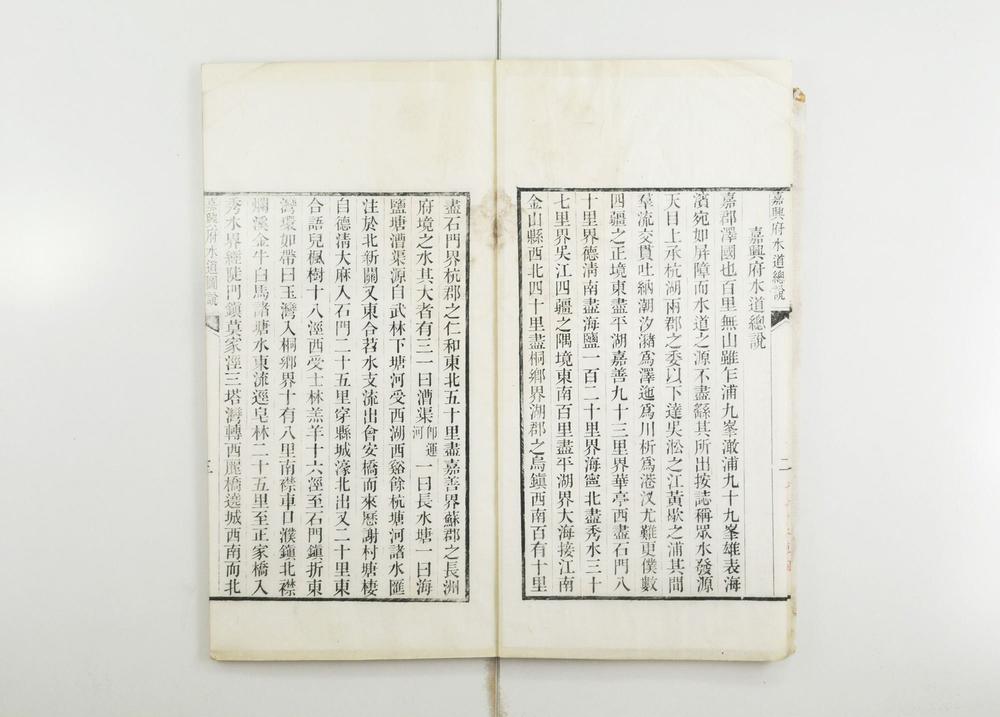 嘉興府水道總說
二
嘉興府水道總說
嘉郡澤國也百里無山雖乍浦九峯澉浦九十九峯雄表海
濱宛如屏障而水道之源不盡繇其所出按誌稱眾水發源
天目上承杭湖兩郡之委以下達吳淞之江黃歇之浦其間
羣流交貫吐納潮汐瀦爲澤迤爲川析爲港汊尤難更僕數
四疆之正境東盡平湖嘉善九十三里界華亭西盡石門八
十里界德淸南盡海鹽一百二十里界海寧北盡秀水三十
七里界吳江四疆之隅境東南百里盡平湖界大海接江南
金山縣西北四十里盡桐鄉界湖郡之烏鎮西南百有十里
盡石門界杭郡之仁和東北五十里盡嘉善界蘇郡之長洲
府境之水其大者有三一曰漕渠卽運河一曰長水塘一曰海
鹽塘漕渠源自武林下塘河受西湖西谿餘杭塘河諸水匯
注於北新關又東合苕水支流出會安橋而來歷謝村塘棲
自德清大麻入石門二十五里穿縣城濠北出又二十里東
合語兒楓樹十八涇西受士林羔羊十六涇至石門鎮折東
灣環如帶曰玉灣入桐鄉界十有八里南襟車口濮鎮北襟
爛溪金牛白馬諸塘水東流逕皂林二十五里至正家橋入
秀水界經陡門鎮莫家涇三塔灣轉西麗橋遶城西南而北
嘉興府水道圖說
三